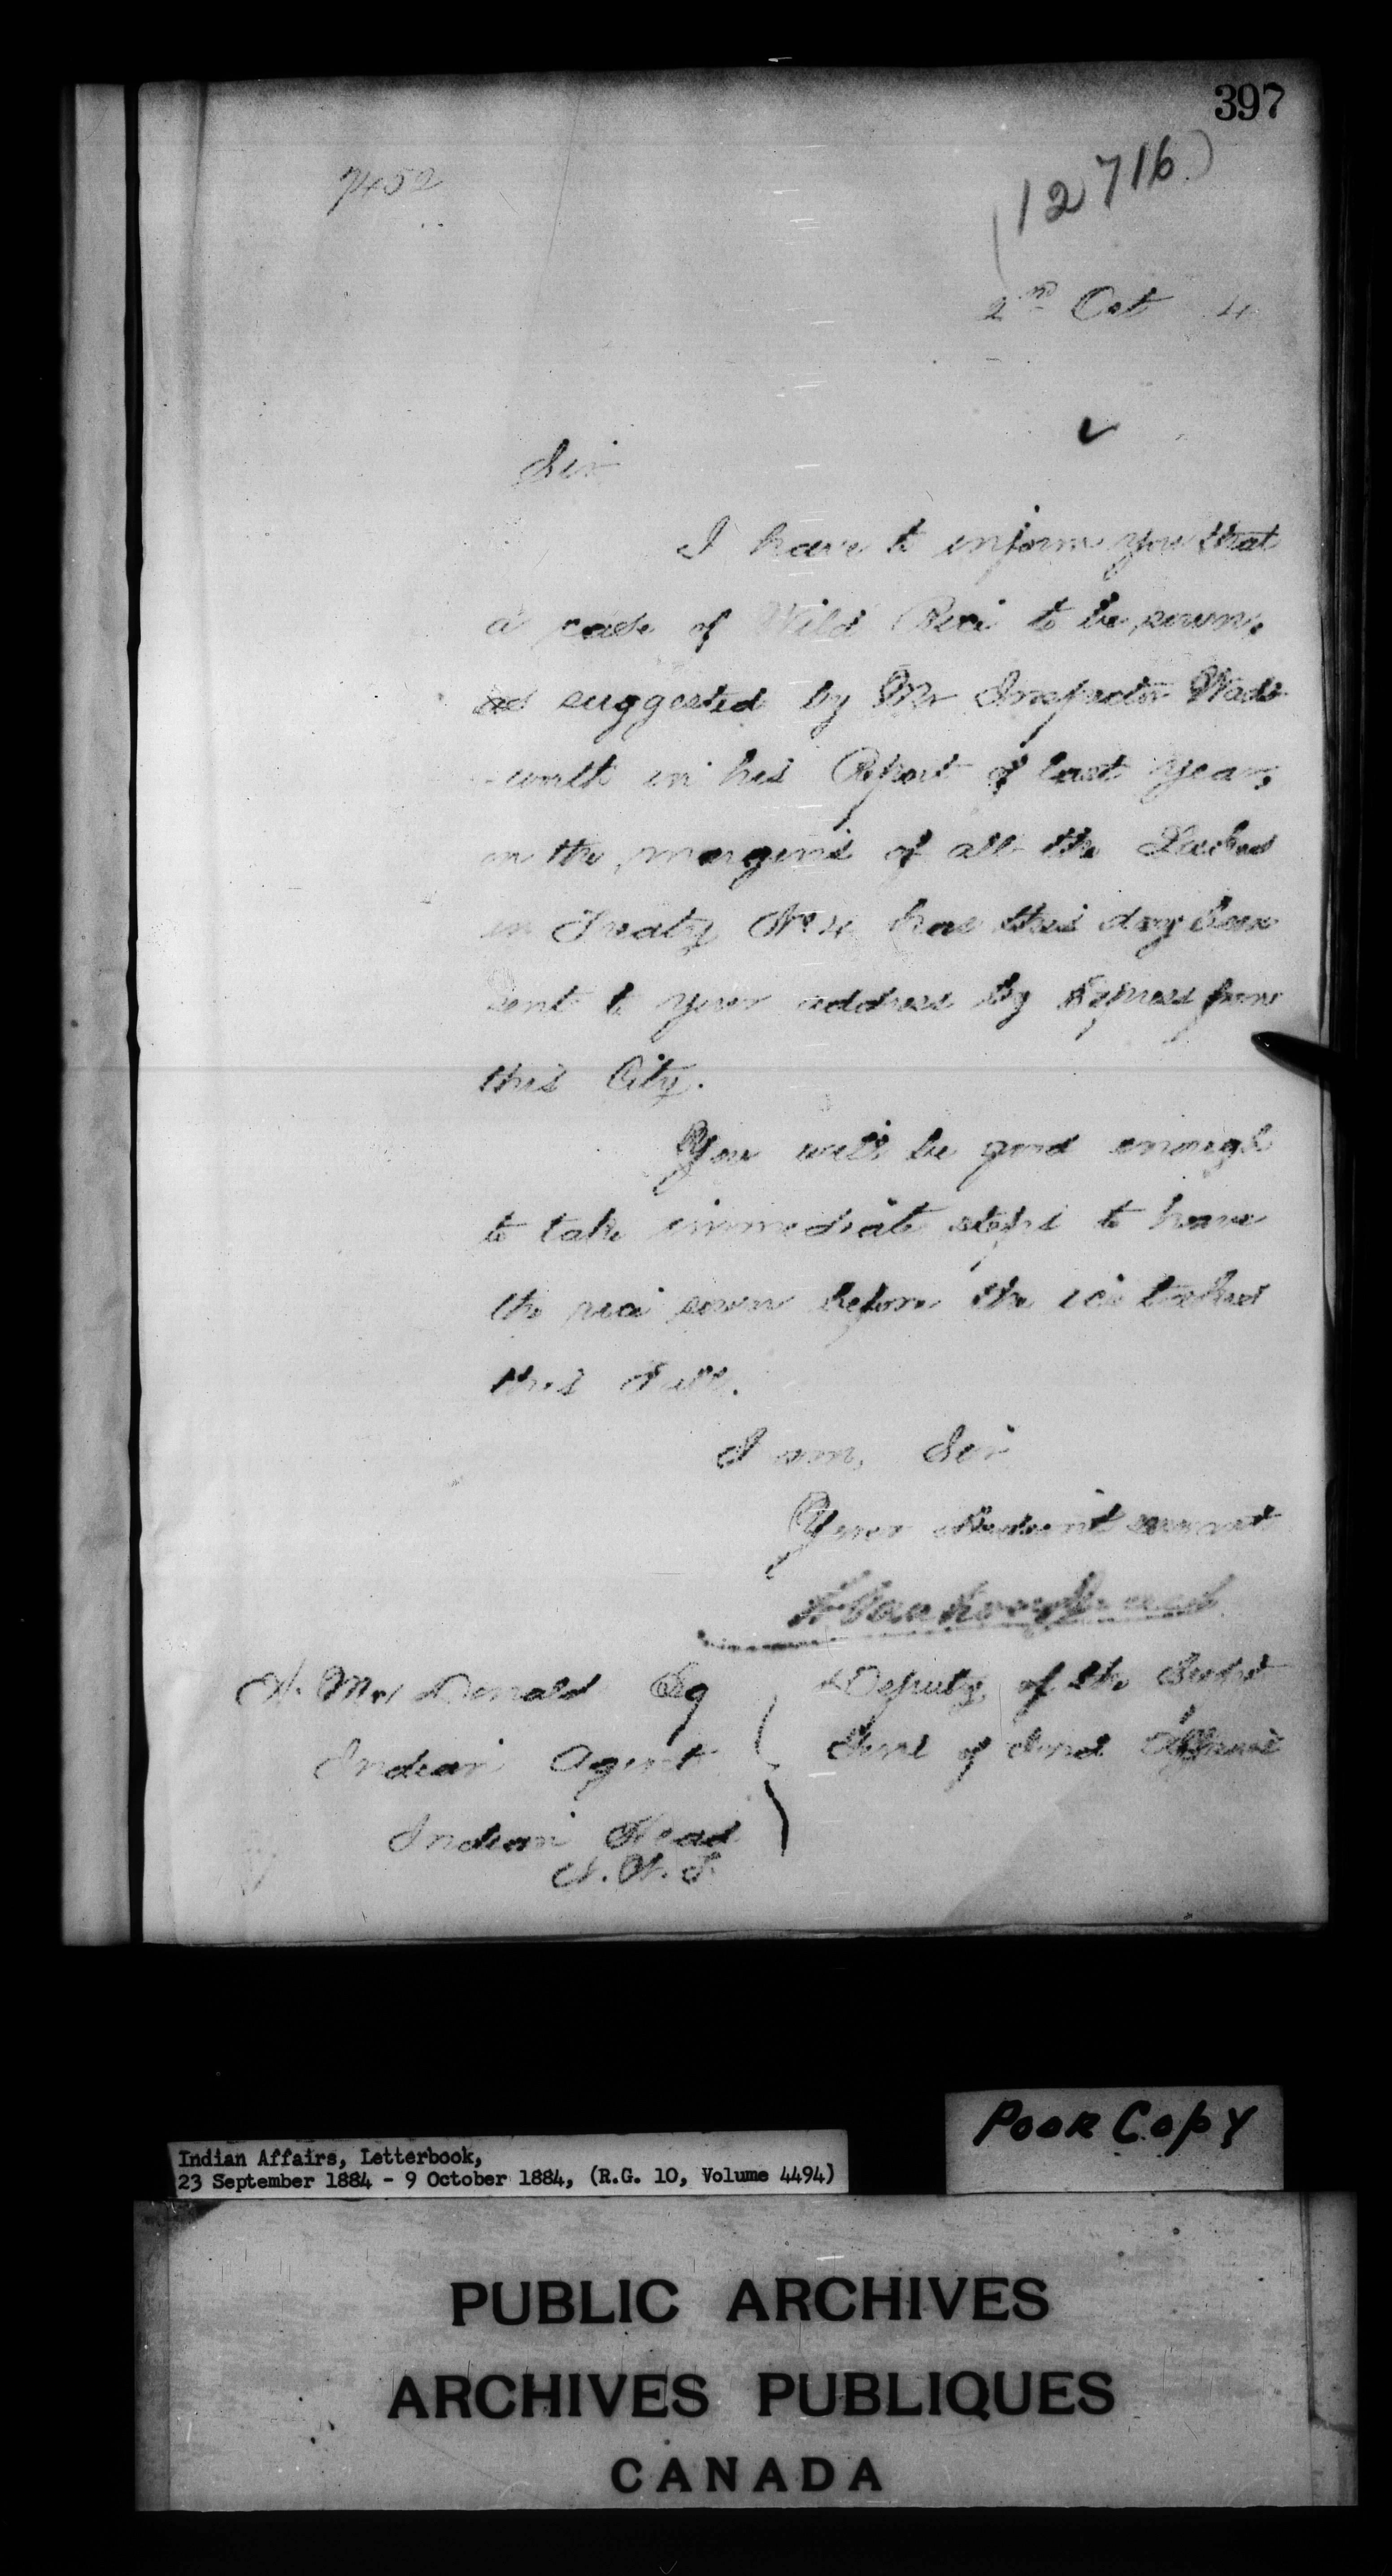 397
7452
(12716)
2nd Oct 4
Sir
I have to inform you that
a case of Wild Rice to be sown,
as suggested by Mr Inspector Wads
-worth in his Report of last year,
on the margins of all the Lakes
in Treaty No 4, has this day been
sent to your address by Express from
this City.
You will be good enough
to take immediate steps to have
the rice sown before the ice takes
this Fall.
I am, Sir
Your obedient servant
L Vankoughnet
Deputy of the Supt
Genl of Ind Affairs
A. McDonald Esq
Indian Agent
Indian Head
N.W.T.
Poor Copy
Indian Affairs, Letterbook,
23 September 1884 - 9 October 1884, (R.G. 10, Volume 4494)
PUBLIC ARCHIVES
ARCHIVES PUBLIQUES
CANADA